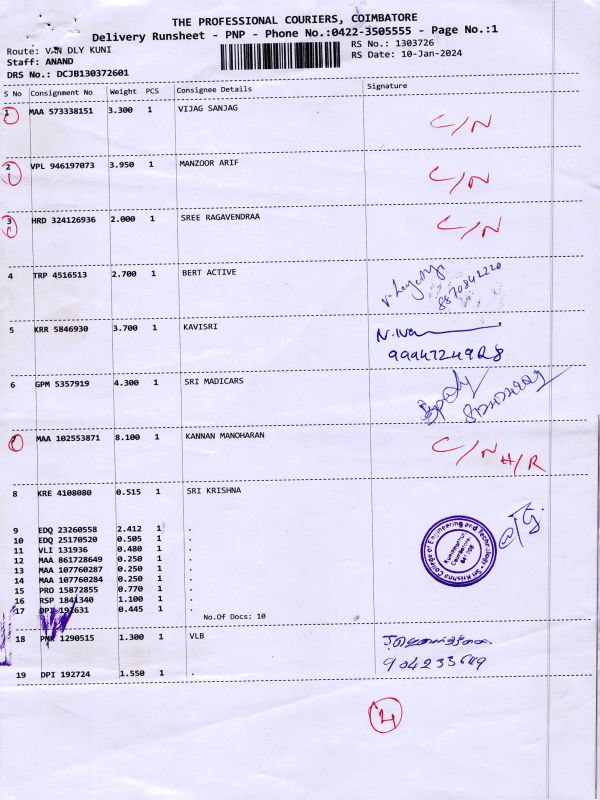 THE PROFESSIONAL COURIERS, COIMBATORE
Delivery Runsheet - PNP - Phone No.:0422-3505555 - Page No.:1
Route: VAN DLY KUNI RS No.: 1303726
Staff: ANAND RS Date: 10-Jan-2024
DRS No.: DCJB130372601
S No Consignment No Weight PCS Consignee Details Signature
1 MAA 573338151 3.300 1 VIJAG SANJAG C/N
2 VPL 946197073 3.950 1 MANZOOR ARIF C/N
3 HRD 324126936 2.000 1 SREE RAGAVENDRAA C/N
4 TRP 4516513 2.700 1 BERT ACTIVE
8870842220
5 KRR 5846930 3.700 1 KAVISRI
6 GPM 5357919 4.300 1 SRI MADICARS
MAA 102553871 8.100 1 KANNAN MANOHARAN C/N H/R
8 KRE 4108080 0.515 1 SRI KRISHNA
9 EDQ 23260558 2.412 1 .
10 EDQ 25170520 0.505 1 .
11 VLI 131936 0.480 1 .
12 MAA 861728649 0.250 1 .
13 MAA 107760287 0.250 1 .
14 MAA 107760284 0.250 1 .
15 PRO 15872855 0.770 1 .
16 RSP 1841340 1.100 1 .
17 DPI 192631 0.445 1 .
No.Of Docs: 10
Sri Krishna College of Engineering and Technology
Kuniamuthur, Coimbatore
18 PMK 1290515 1.300 1 VLB
904233649
19 DPI 192724 1.550 1 .
4